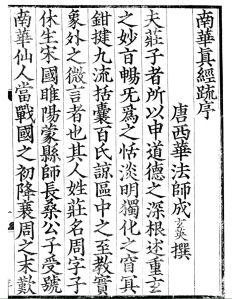 南華真經疏序
唐西華法師成玄英撰
夫莊子者所以申道德之深根述重玄
之妙旨暢無為之恬淡明獨化之窅冥
鉗揵九流括囊百氏諒區中之至教實
象外之微言者也其人姓莊名周字子
休生宋國睢陽蒙縣師長桑公子受號
南華仙人當戰國之初降衰周之末歎